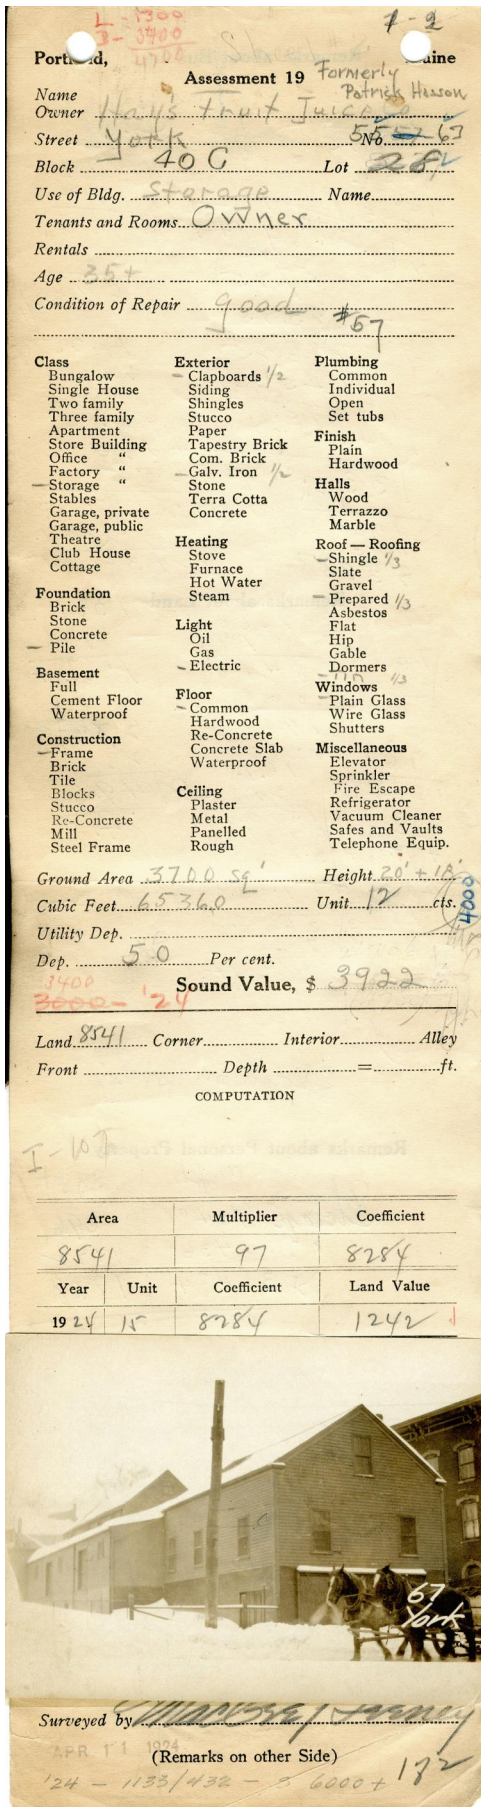 L - 1300
B - 3400
4700
1-2
Portland, Maine
Assessment 19
Formerly
Patrick Hasson
Name
Owner Hay's Fruit Juice Co
Street York No. 55 63
Block 40 C Lot 28
Use of Bldg. Storage Name
Tenants and Rooms Owner
Rentals
Age 35+
Condition of Repair good
#57
Class
Bungalow
Single House
Two family
Three family
Apartment
Store Building
Office "
Factory "
Storage "
Stables
Garage, private
Garage, public
Theatre
Club House
Cottage
Foundation
Brick
Stone
Concrete
Pile
Basement
Full
Cement Floor
Waterproof
Construction
Frame
Brick
Tile
Blocks
Stucco
Re-Concrete
Mill
Steel Frame
Exterior
Clapboards 1/2
Siding
Shingles
Stucco
Paper
Tapestry Brick
Com. Brick
Galv. Iron 1/2
Stone
Terra Cotta
Concrete
Heating
Stove
Furnace
Hot Water
Steam
Light
Oil
Gas
Electric
Floor
Common
Hardwood
Re-Concrete
Concrete Slab
Waterproof
Ceiling
Plaster
Metal
Panelled
Rough
Plumbing
Common
Individual
Open
Set tubs
Finish
Plain
Hardwood
Halls
Wood
Terrazzo
Marble
Roof — Roofing
Shingle 1/3
Slate
Gravel
Prepared 1/3
Asbestos
Flat
Hip
Gable
Dormers
Tin 1/3
Windows
Plain Glass
Wire Glass
Shutters
Miscellaneous
Elevator
Sprinkler
Fire Escape
Refrigerator
Vacuum Cleaner
Safes and Vaults
Telephone Equip.
Ground Area 3700 sq' Height 20' + 18'
Cubic Feet 65360 Unit 12 cts.
4000
Utility Dep.
Dep. 50 Per cent.
Sound Value, $ 3922
3400
3000 - '24
Land 8541 Corner Interior Alley
Front Depth = ft.
COMPUTATION
I - 107
Area Multiplier Coefficient
8541 97 8284
Year Unit Coefficient Land Value
1924 15 8284 1242
67
York
Surveyed by
APR 11 1924
(Remarks on other Side)
'24 - 1133/432 - 3 6000+ 132